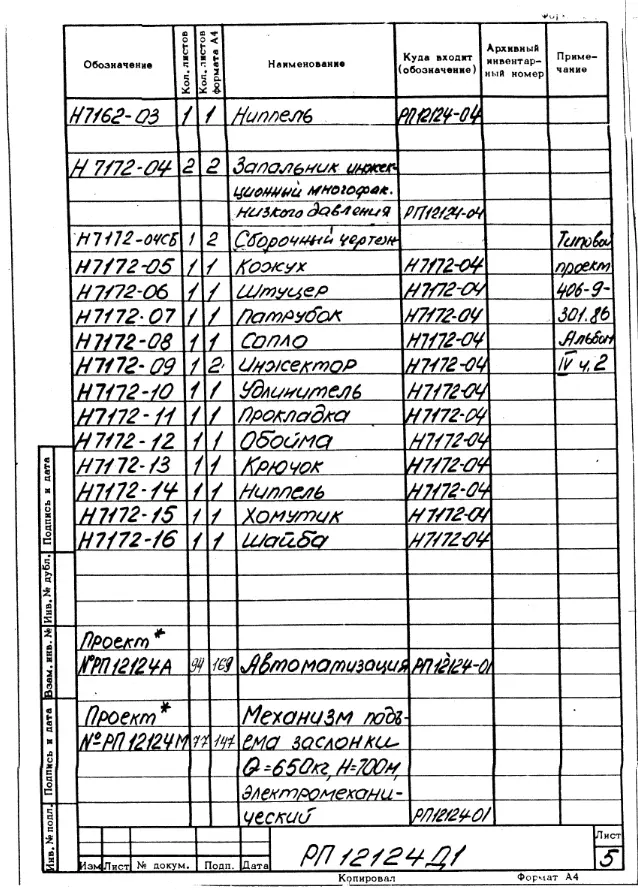 Обозначение Кол. листов Кол. листов формата А4 Наименование Куда входит (обозначение) Архивный инвентарный номер Примечание
Н7162-03 1 1 Ниппель РП12124-04
Н7172-04 2 2 Запальник инжек-
ционный многофак.
низкого давления РП12124-04
Н7172-04СБ 1 2 Сборочный чертеж Типовой
Н7172-05 1 1 Кожух Н7172-04 проект
Н7172-06 1 1 Штуцер Н7172-04 406-9-
Н7172-07 1 1 Патрубок Н7172-04 301.86
Н7172-08 1 1 Сопло Н7172-04 Альбом
Н7172-09 1 2 Инжектор Н7172-04 IV ч.2
Н7172-10 1 1 Удлинитель Н7172-04
Н7172-11 1 1 Прокладка Н7172-04
Н7172-12 1 1 Обойма Н7172-04
Н7172-13 1 1 Крючок Н7172-04
Н7172-14 1 1 Ниппель Н7172-04
Н7172-15 1 1 Хомутик Н7172-04
Н7172-16 1 1 Шайба Н7172-04
Проект*
№РП12124А 94 169 Автоматизация РП12124-01
Проект* Механизм подъ-
№РП12124М 77 147 ема заслонки
Q=650кг, H=700м,
электромехани-
ческий РП12124-01
Инв. № подл. Подпись и дата Взам. инв. № Инв. № дубл. Подпись и дата
РП12124Д1
Лист
5
Изм Лист № докум. Подп. Дата
Копировал Формат А4